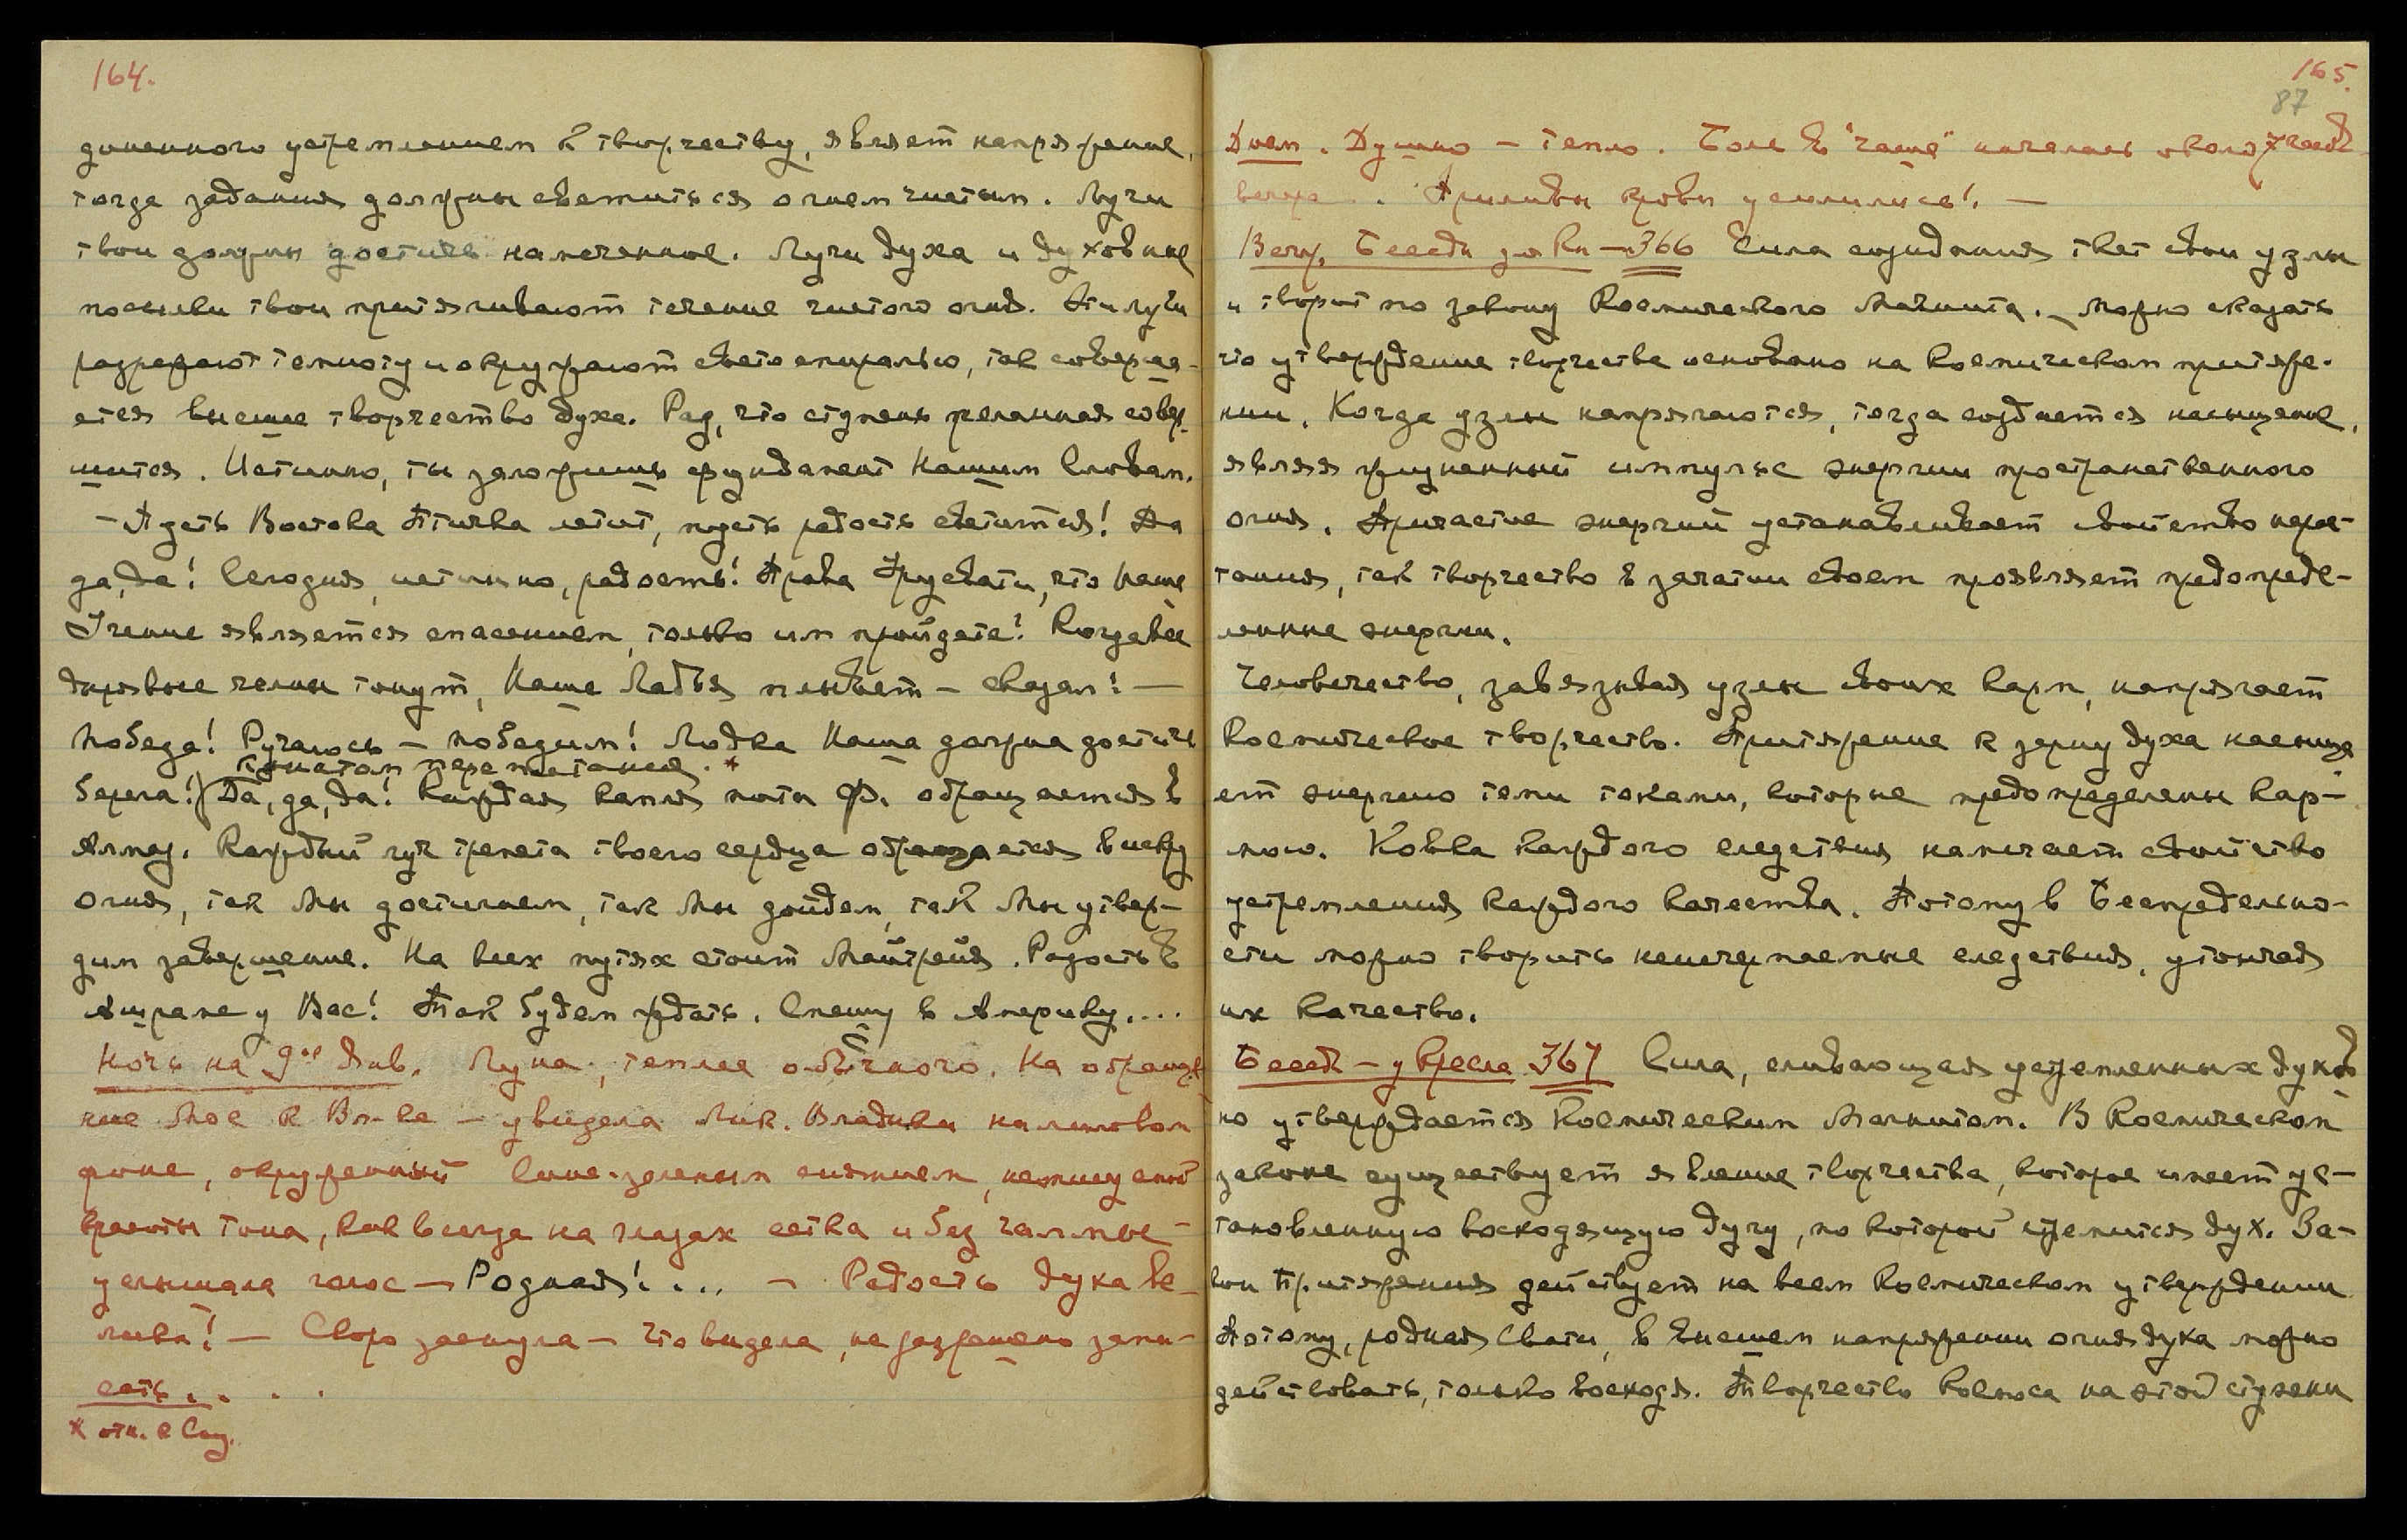 164.
диненного устремлением к творчеству, являет напряжение,
тогда задания должны светиться огнем чистым. Лучи
твои должны достичь намеченное. Лучи духа и духовные
посылки твои притягивают течение чистого огня. Эти лучи
разрезают темноту и окружают светоспиралью, так соверша-
ется высшее творчество духа. Рад, что ступень желанная совер-
шится. Истинно, ты заложишь фундамент Нашим Словам.
– Пусть Востока Птичка летит, пусть радость светится! Да
да, да! Сегодня, истинно, радость! Права Урусвати, что Наше
Учение является спасением, только им пройдете! Когда все
дырявые челны тонут, Наша Ладья плывет – сказал! —
Победа! Ручаюсь – победим! Лодка Наша должна достичь
к цитатам переметания. *
берега!) Да, да, да! Каждая капля пота Ф. обращается в
Алмаз. Каждый луч трепета твоего сердца обращается в искру
огня, так Мы достигаем, так Мы дойдем, так Мы утвер-
дим завершение. На всех путях стоит Майтрейя. Радость в
Ашраме у Вас! Так будем ждать. Спешу в Америку....
Ночь на 9ое Янв. Луна, теплее обычного. На обраще
ние мое к Вл-ке – увидела Лик. Владыки на лиловом
фоне, окруженный сине-зеленым сиянием,
красоты тона, как всегда на глазах сетка и без
услышала голос – Родная!... – Радость духа ве-
лика! – Скоро заснула – Что видела, не разрешено запи-
сать....
* отн. к
165.
87
Днем. Душно – тепло. Боль в "чаше" началась около 7 часов
вечера. Приливы крови усилились! —
Веч. Беседы за – 366 Сила созидания ткет свои узлы
и творит по закону Космического Магнита. – Можно сказать
что утверждение творчества основано на Космическом притяже-
нии. Когда узлы напрягаются, тогда создается насыщение,
являя жизненный импульс энергии пространственного
огня. Причастие энергий устанавливает свойство нарас-
тания, так творчество в зачатии своем проявляет предопреде-
ленные энергии.
Человечество, завязывая узлы своих карм, напрягает
Космическое творчество. Притяжение к зерну духа насыща
ет энергию теми токами, которые предопределены кар-
мою. Ковка каждого следствия намечает свойство
устремления каждого качества. Потому в Беспредельно-
сти можно творить неисчерпаемые следствия, утончая
их качество.
Бесед – у Кресла 367 Сила, сливающая устремленных духов
но утверждается Космическим Магнитом. В Космическом
законе существует явление творчества, которое имеет ус-
тановленную восходящую дугу, по которой стремится дух. За-
кон Притяжения действует на всем Космическом утверждении
Потому, родная Свати, в высшем напряжении огня духа можно
действовать, только восходя. Творчество Космоса на этой ступени